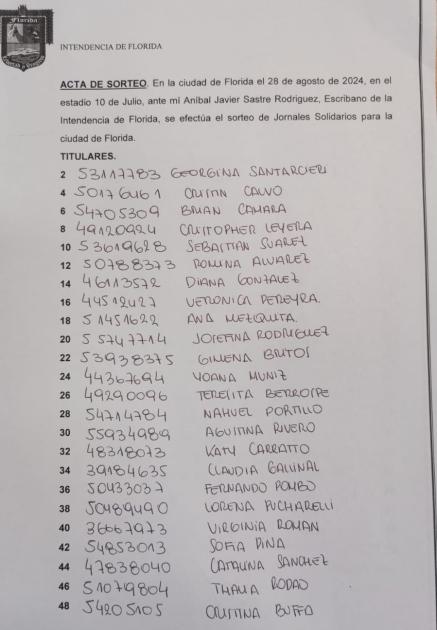 Florida
INTENDENCIA DE FLORIDA
ACTA DE SORTEO. En la ciudad de Florida el 28 de agosto de 2024, en el
estadio 10 de Julio, ante mi Aníbal Javier Sastre Rodriguez, Escribano de la
Intendencia de Florida, se efectúa el sorteo de Jornales Solidarios para la
ciudad de Florida.
TITULARES.
2 53117783 GEORGINA SANTARCIERI
4 50176461 CRISTIN CALVO
6 54705309 BRIAN CAMARA
8 49120924 CRISTOPHER LEYERA
10 53619628 SEBASTIAN SUAREZ
12 50788373 ROMINA ALVAREZ
14 46113572 DIANA GONZALEZ
16 44512427 VERONICA PEREYRA.
18 51451622 ANA MEZQUITA.
20 55747714 JOSEFINA RODRIGUEZ
22 53938375 GIMENA BRITOS
24 44367694 YOANA MUNIZ
26 49290096 TERESITA
28 54714784 NAHUEL PORTILLO
30 55934989 AGUSTINA RIVERO
32 48318073 KATY CARRATTO
34 39184635 CLAUDIA GALLINAL
36 50433037 FERNANDO POMBO
38 50489490 LORENA PUCHARELLI
40 36667973 VIRGINIA ROMAN
42 54853013 SOFIA PIÑA
44 47838040 CATALINA SANCHEZ
46 51079804 THALIA RODAO
48 54205105 CRISTINA BUFFA